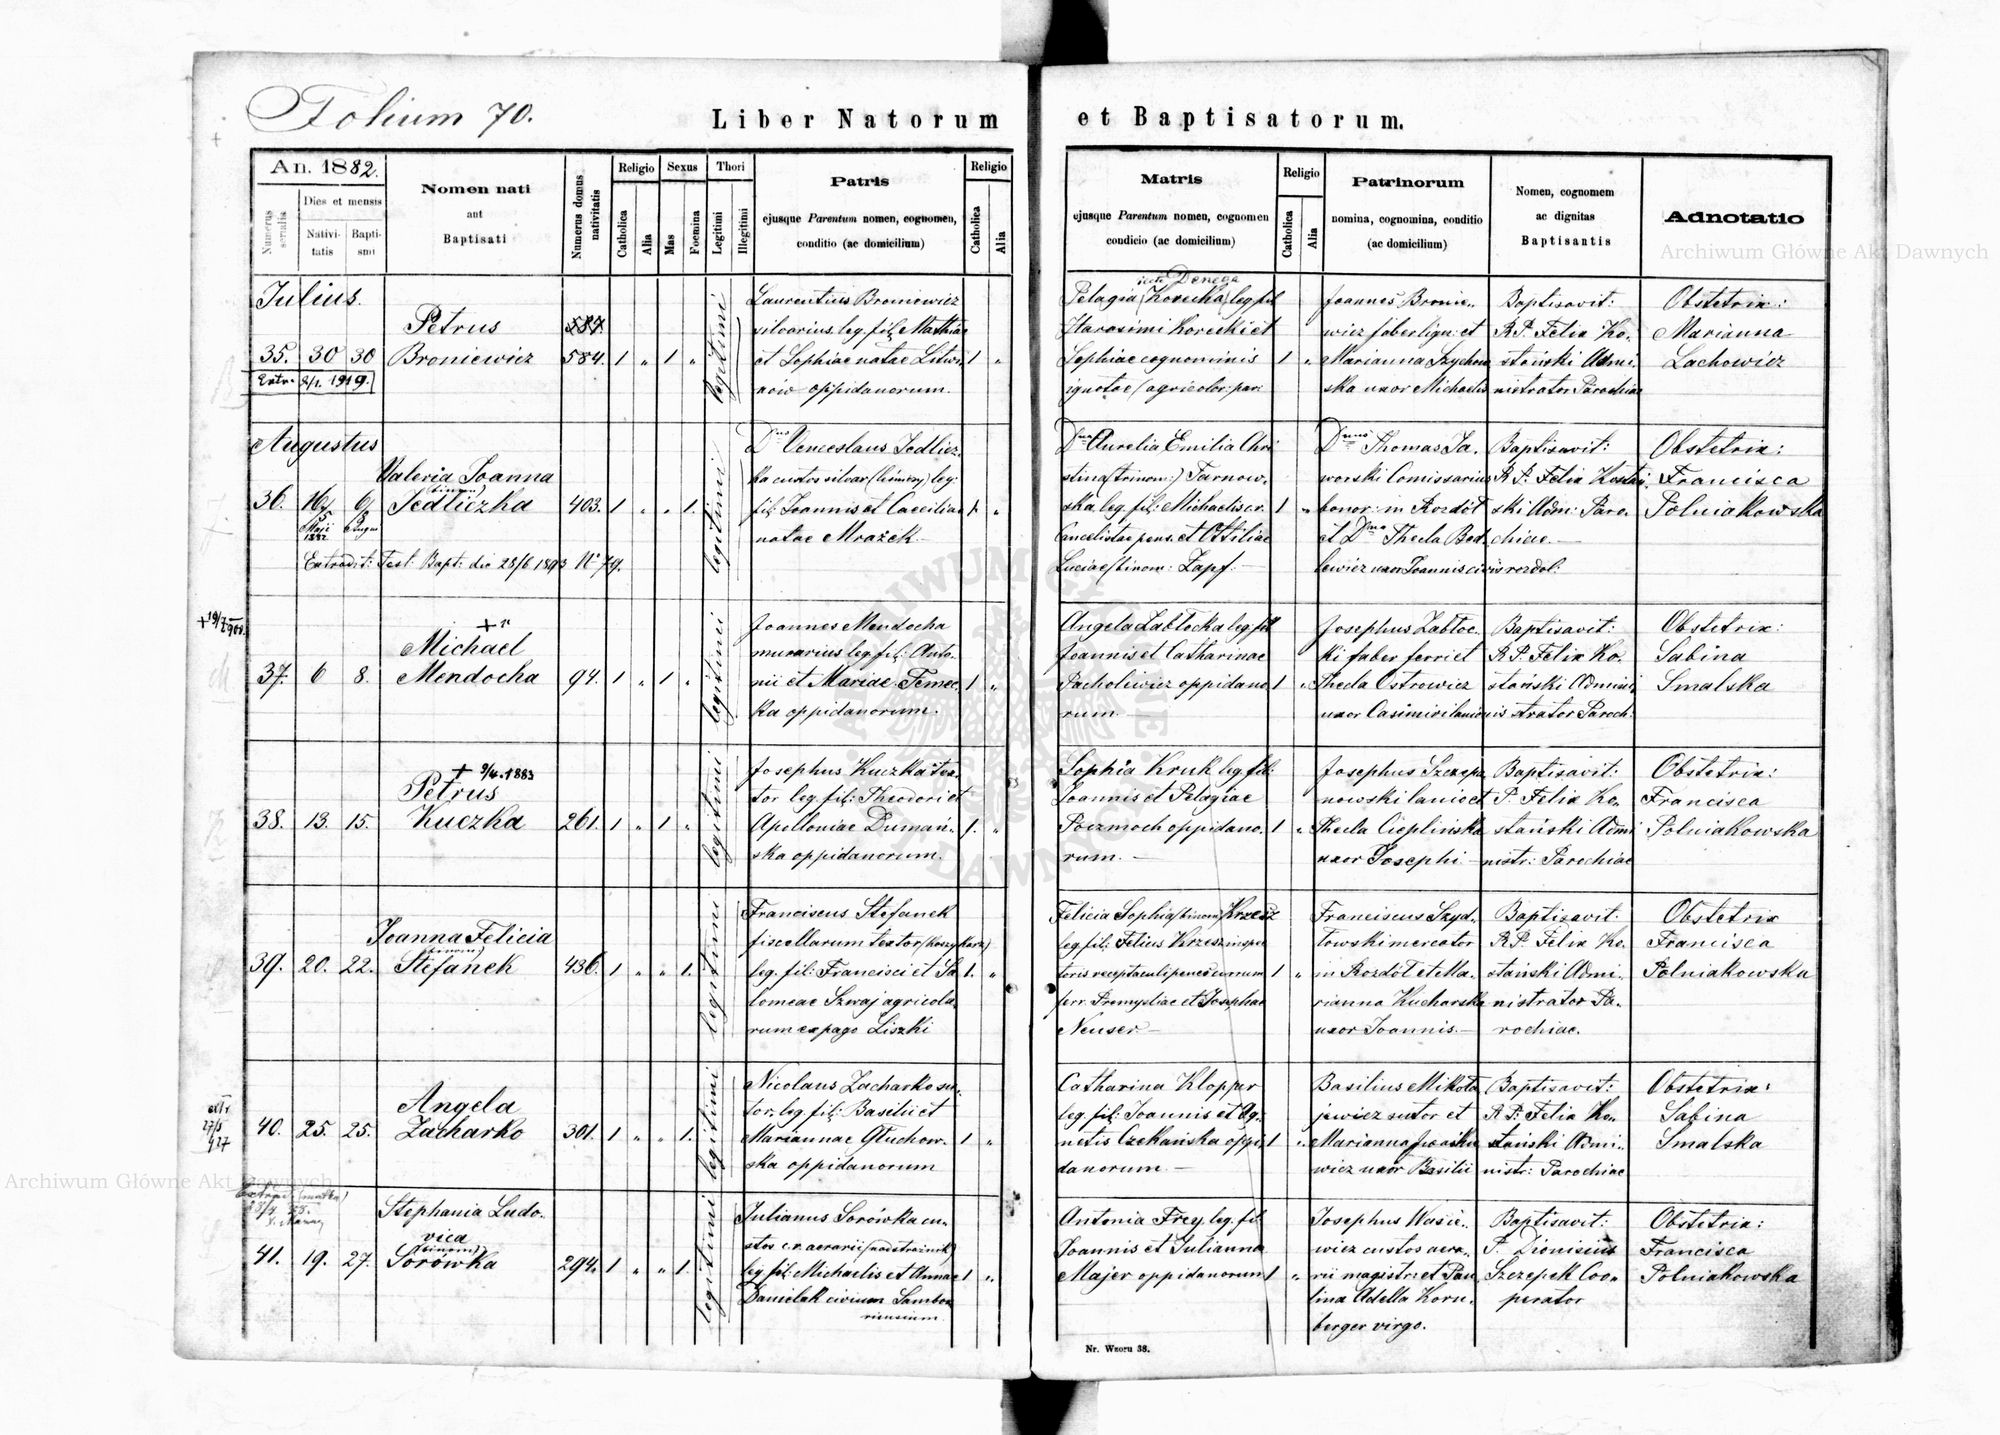 Folium 70.
Liber Natorum et Baptisatorum.
An. 1882.
Numerus serialis
Dies et mensis
Nativitatis
Baptismi
Nomen nati
aut
Baptisati
Numerus domus nativitatis
Religio
Catholica
Alia
Sexus
Mas
Foemina
Thori
Legitimi
Illegitimi
Patris
ejusque Parentum nomen, cognomen,
conditio (ac domicilium)
Religio
Catholica
Alia
Matris
ejusque Parentum nomen, cognomen
condicio (ac domicilium)
Religio
Catholica
Alia
Patrinorum
nomina, cognomina, conditio
(ac domicilium)
Nomen, cognomen
ac dignitas
Baptisantis
Adnotatio
Archiwum Główne Akt Dawnych
Julius.
35. 30 30
Extr. 8/1. 1919.
Petrus
Broniewicz
587
584. 1 „ 1 „
legitimi
Laurentius Broniewicz
silvarius leg. fil. Mathiae
et Sophiae natae Litwi-
nów oppidanorum.
1 „
recte Denega
Pelagia (Korecka) leg. fil
Harasimi Korecki et
Sophiae cognominis
ignotae (agricolar: par:
1 „
Joannes Bronie-
wicz faber lign: et
Marianna Szychow-
ska uxor Michaelis
Baptisavit:
R.P. Felix Ko-
stański Admi-
nistrator Parochiae
Obstetrix:
Marianna
Lachowicz
Augustus
36. 16/5 Maii 1882 6/8 Augu
Valeria Joanna
(binom)
Jedliczka
403. 1 „ „ 1.
legitimi
Dnus Venceslaus Jedlicz-
ka custos silvar (leśniczy) leg:
fil: Joannis et Caeciliae
natae Mražek
1. „
Extradit: Test: Bapt: die 28/6 1893 No 79.
Dna Aurelia Emilia Chri
stina (trinom:) Tarnow-
ska leg. fil: Michaelis c.r.
Cancelistae pens. et Ottiliae
Luciae (binom: Zapf.
1 „
Dnus Thomas Ja-
worski Comissarius
bonor: in Rozdół
et Dna Thecla Bed-
lewicz uxor Joannis civis rozdol:
Baptisavit:
R.P. Felix Kostań-
ski Adm: Paro-
chiae.
Obstetrix:
Francisca
Polniakowska
+ 19/7 1960.
37. 6 8.
+
Michael
Mendocha
94. 1 „ 1 „
legitimi
Joannes Mendocha
murarius leg. fil: Anto-
nii et Mariae Temec-
ka oppidanorum.
1 „
Angela Zabłocka leg. fil
Joannis et Catharinae
Pacholiwicz oppidano
rum.
1 „
Josephus Zabłoc-
ki faber ferri et
Thecla Ostrowicz
uxor Casimiri lanionis
Baptisavit:
R.P. Felix Ko-
stański Admini
strator Paroch:
Obstetrix:
Sabina
Smalska
38. 13. 15.
+ 9/4. 1883
Petrus
Kuczka
261. 1 „ 1 „
legitimi
Josephus Kuczka tex-
tor leg. fil: Theodori et
Apolloniae Dumań-
ska oppidanorum.
1. „
Sophia Kruk leg. fil:
Joannis et Pelagiae
Poczmoch oppidano-
rum.
1 „
Josephus Szczepa
nowski lanio et
Thecla Cieplińska
uxor Josephi
Baptisavit:
P. Felix Ko-
stański Admi
nistr: Parochiae
Obstetrix:
Francisca
Polniakowska
39. 20. 22.
Joanna Felicia
(binom)
Stefanek
436. 1 „ „ 1.
legitimi
Franciscus Stefanek
fiscellarum textor (koszykarz)
leg. fil: Francisci et Sa
lomeae Szwaj agricola-
rum ex pago Liszki
1. „
Felicia Sophia (binom) Krzesz
leg. fil: Felius Krzesz inspec
toris receptaculi penes currum
ferr. Premysliae et Josephae
Neuser
1 „
Franciscus Szyd-
łowski mercator
in Rozdół et Ma-
rianna Kucharska
uxor Joannis.
Baptisavit:
R.P. Felix Ko-
stański Admi-
nistrator Pa-
rochiae.
Obstetrix
Francisca
Polniakowska
extr
27/5
927
40. 25. 25.
Angela
Zacharko
301. 1 „ „ 1.
legitimi
Nicolaus Zacharko su-
tor, leg. fil: Basilii et
Mariannae Głuchow-
ska oppidanorum
1. „
Catharina Klopper
leg. fil: Joannis et Ag-
netis Czekańska oppi-
danorum.
1 „
Basilius Mikoła
jewicz sutor et
Marianna
wicz uxor Basilii
Baptisavit:
R.P. Felix Ko-
stański Admi-
nistr: Parochiae
Obstetrix:
Sabina
Smalska
Archiwum Główne Akt Dawnych
41. 19. 27.
Stephania Ludo-
vica
(binom)
Sorówka
294. 1 „ „ 1.
legitimi
Julianus Sorówka cu-
stos c.r. aerarii (nadstrażnik)
leg. fil: Michaelis et Annae
Danielak civium Sambor
riensium
1 „
Antonia Frey, leg. fil.
Joannis et Julianna
Majer oppidanorum
1 „
Josephus Wasie-
wicz custos aera-
rii magistri et Pau
lina Adella Korn-
berger virgo.
Baptisavit:
P. Dionisius
Szczepek Coo-
perator
Obstetrix:
Francisca
Polniakowska
Nr. Wzoru 38.